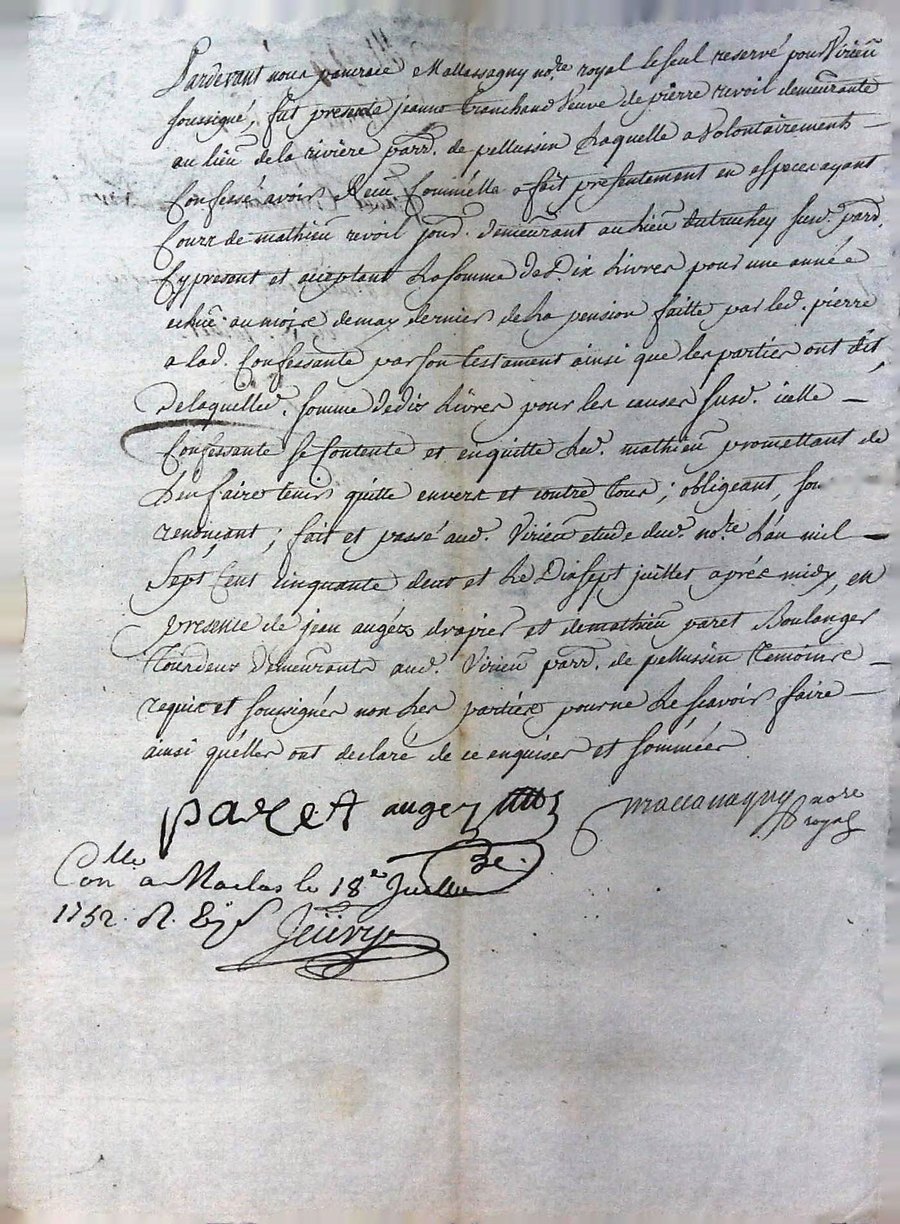 Pardevant nous pancrace Mallassagny no.re royal le seul reservé pour Virieu
soussigné, fut presente jeanne tranchand veuve de pierre revoil demeurante
au lieu de la rivière parr. de pellussin laquelle a volontairement
Confessé avoir Reçu Comme elle a fait presentement en especes ayant
Cours de mathieu revoil jourd. demeurant au lieu susd. parr.
Cy present et aceptant la somme de Dix Livres pour une année
echue au moire de may dernier de la pension faitte par led. pierre
a lad. Confessante par son testament ainsi que les parties ont dit,
De laquelled. somme de dix Livres pour les causes susd. icelle
Confessante se Contente et en quitte led. mathieu promettant de
l'en faire tenir quitte envers et contre tous ; obligeant, sou
renonçant ; fait et passé aud. Virieu etude dud. no.re l'an mil
Sept Cent cinquante deux et le Dix sept juillet aprés midy, en
presence de jean augéz drapier et de mathieu paret Boulanger
tourdeux demeurants aud. Virieu parr. de pellussin temoins
requis et soussignés non les parties pour ne le scavoir faire
ainsi qu'elles ont declaré de ce enquises et sommées
paret augez
mallassagny no.re
royal
Con.lle a Maclas le 18e Juillet
1752. R.